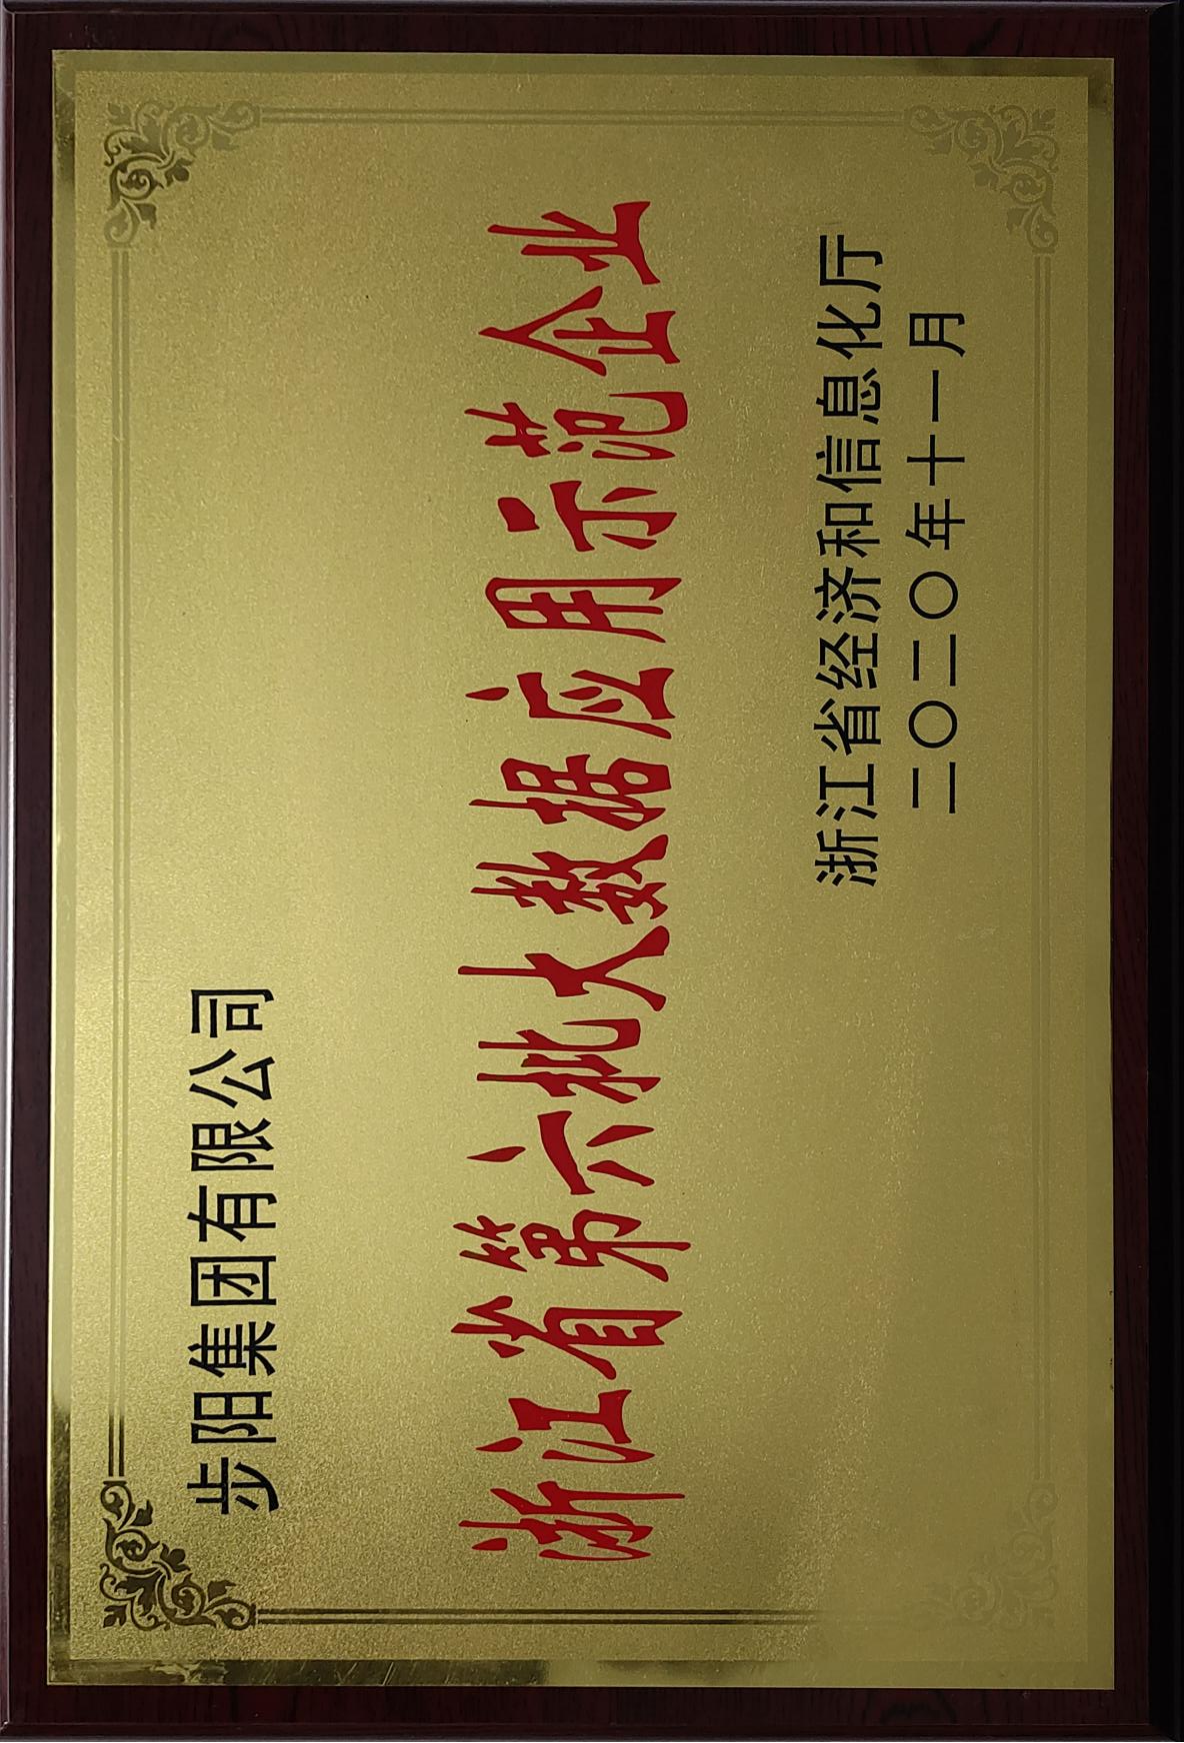 步阳集团有限公司
浙江省第六批大数据应用示范企业
浙江省经济和信息化厅
二〇二〇年十一月